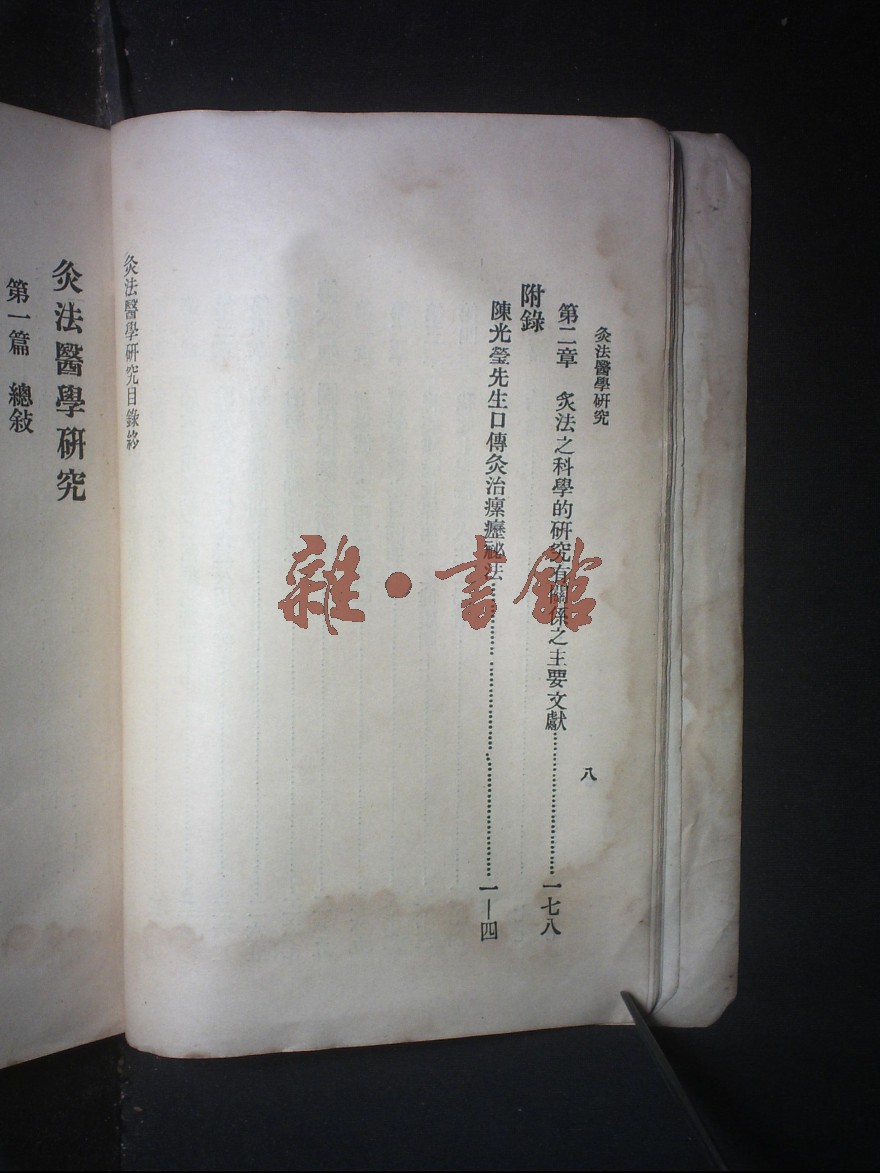 灸法醫學研究
八
第二章　灸法之科學的研究有關係之主要文獻……………………一七八
附錄
陳光瑩先生口傳灸治瘰癧祕法……………………………………一—四
灸法醫學研究目錄終
灸法醫學研究
第一篇　總敍
雜・書館